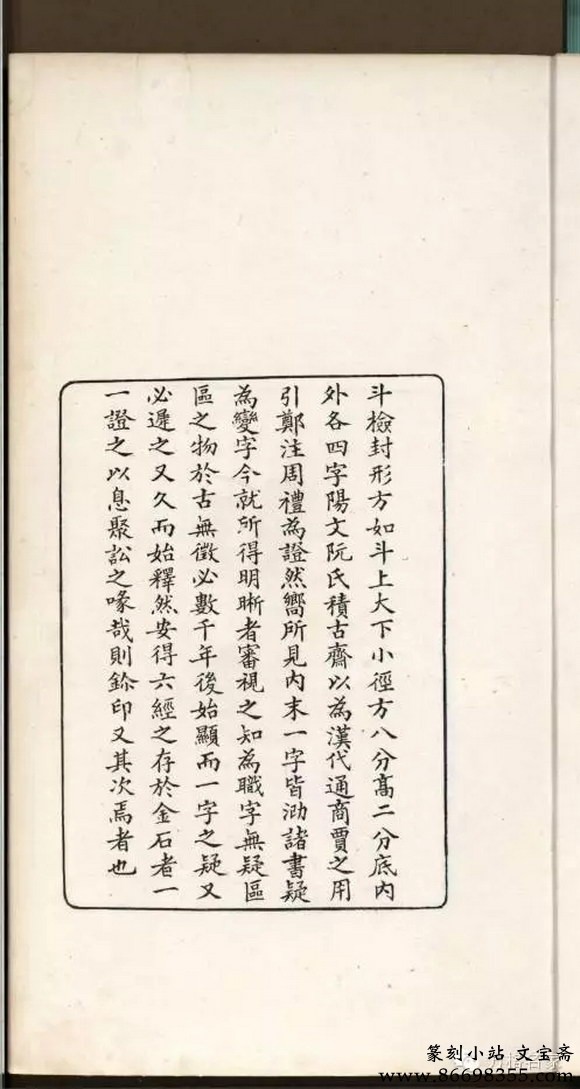 斗檢封形方如斗上大下小徑方八分高二分底內
外各四字陽文阮氏積古齋以為漢代通商賈之用
引鄭注周禮為證然嚮所見內末一字皆泐諸書疑
為變字今就所得明晰者審視之知為職字無疑區
區之物於古無徵必數千年後始顯而一字之疑又
必遲之又久而始釋然安得六經之存於金石者一
一證之以息聚訟之喙哉則鉨印又其次焉者也
篆刻小站 文宝斋
www.86698355.com